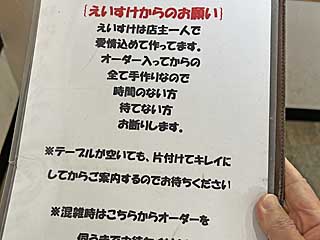 [えいすけからのお願い]
えいすけは店主一人で
愛情込めて作ってます。
オーダー入ってからの
全て手作りなので
時間のない方
待てない方
お断りします。
※テーブルが空いても、片付けてキレイに
してからご案内するのでお待ちください
※混雑時はこちらからオーダーを